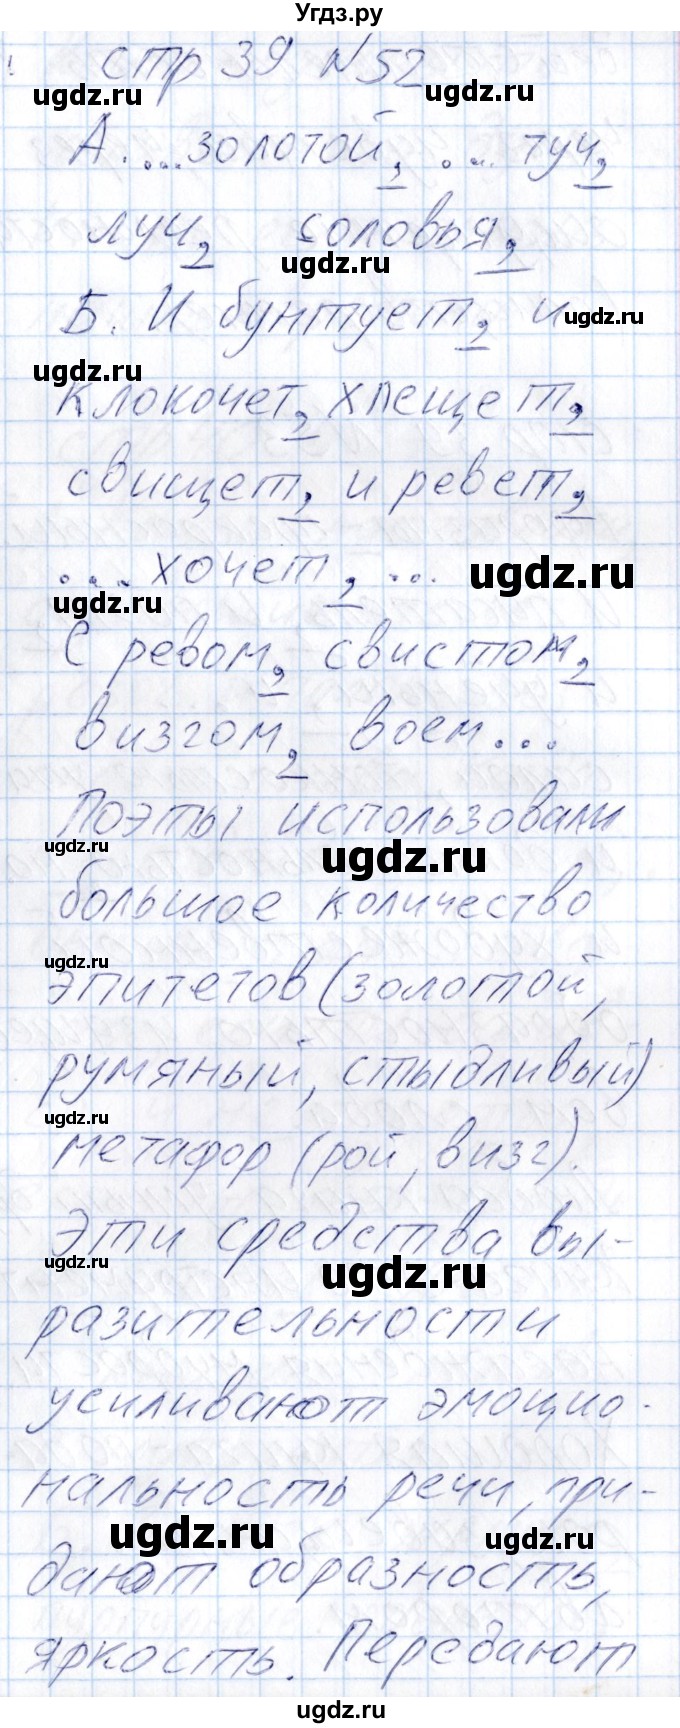 Угдз.ру
стр 39 №52
ugdz.ru
ugdz.ru
А. ...золотой, ... туч,
луч, соловья,
ugdz.ru
Б. И бунтует, и
ugdz.ru
ugdz.ru
клокочет, хлещет,
свищет, и ревет,
....хочет, ...
ugdz.ru
ugdz.ru
С ревом, свистом,
визгом, воем...
Поэты использовали
ugdz.ru
ugdz.ru
большое количество
ugdz.ru
эпитетов (золотой,
румяный, стыдливый)
ugdz.ru
метафор (рой, визг).
Эти средства вы-
ugdz.ru
ugdz.ru
разительности
усиливают эмоцио-
нальность речи, при-
ugdz.ru
ugdz.ru
дают образность,
яркость. Передают
ugdz.ru